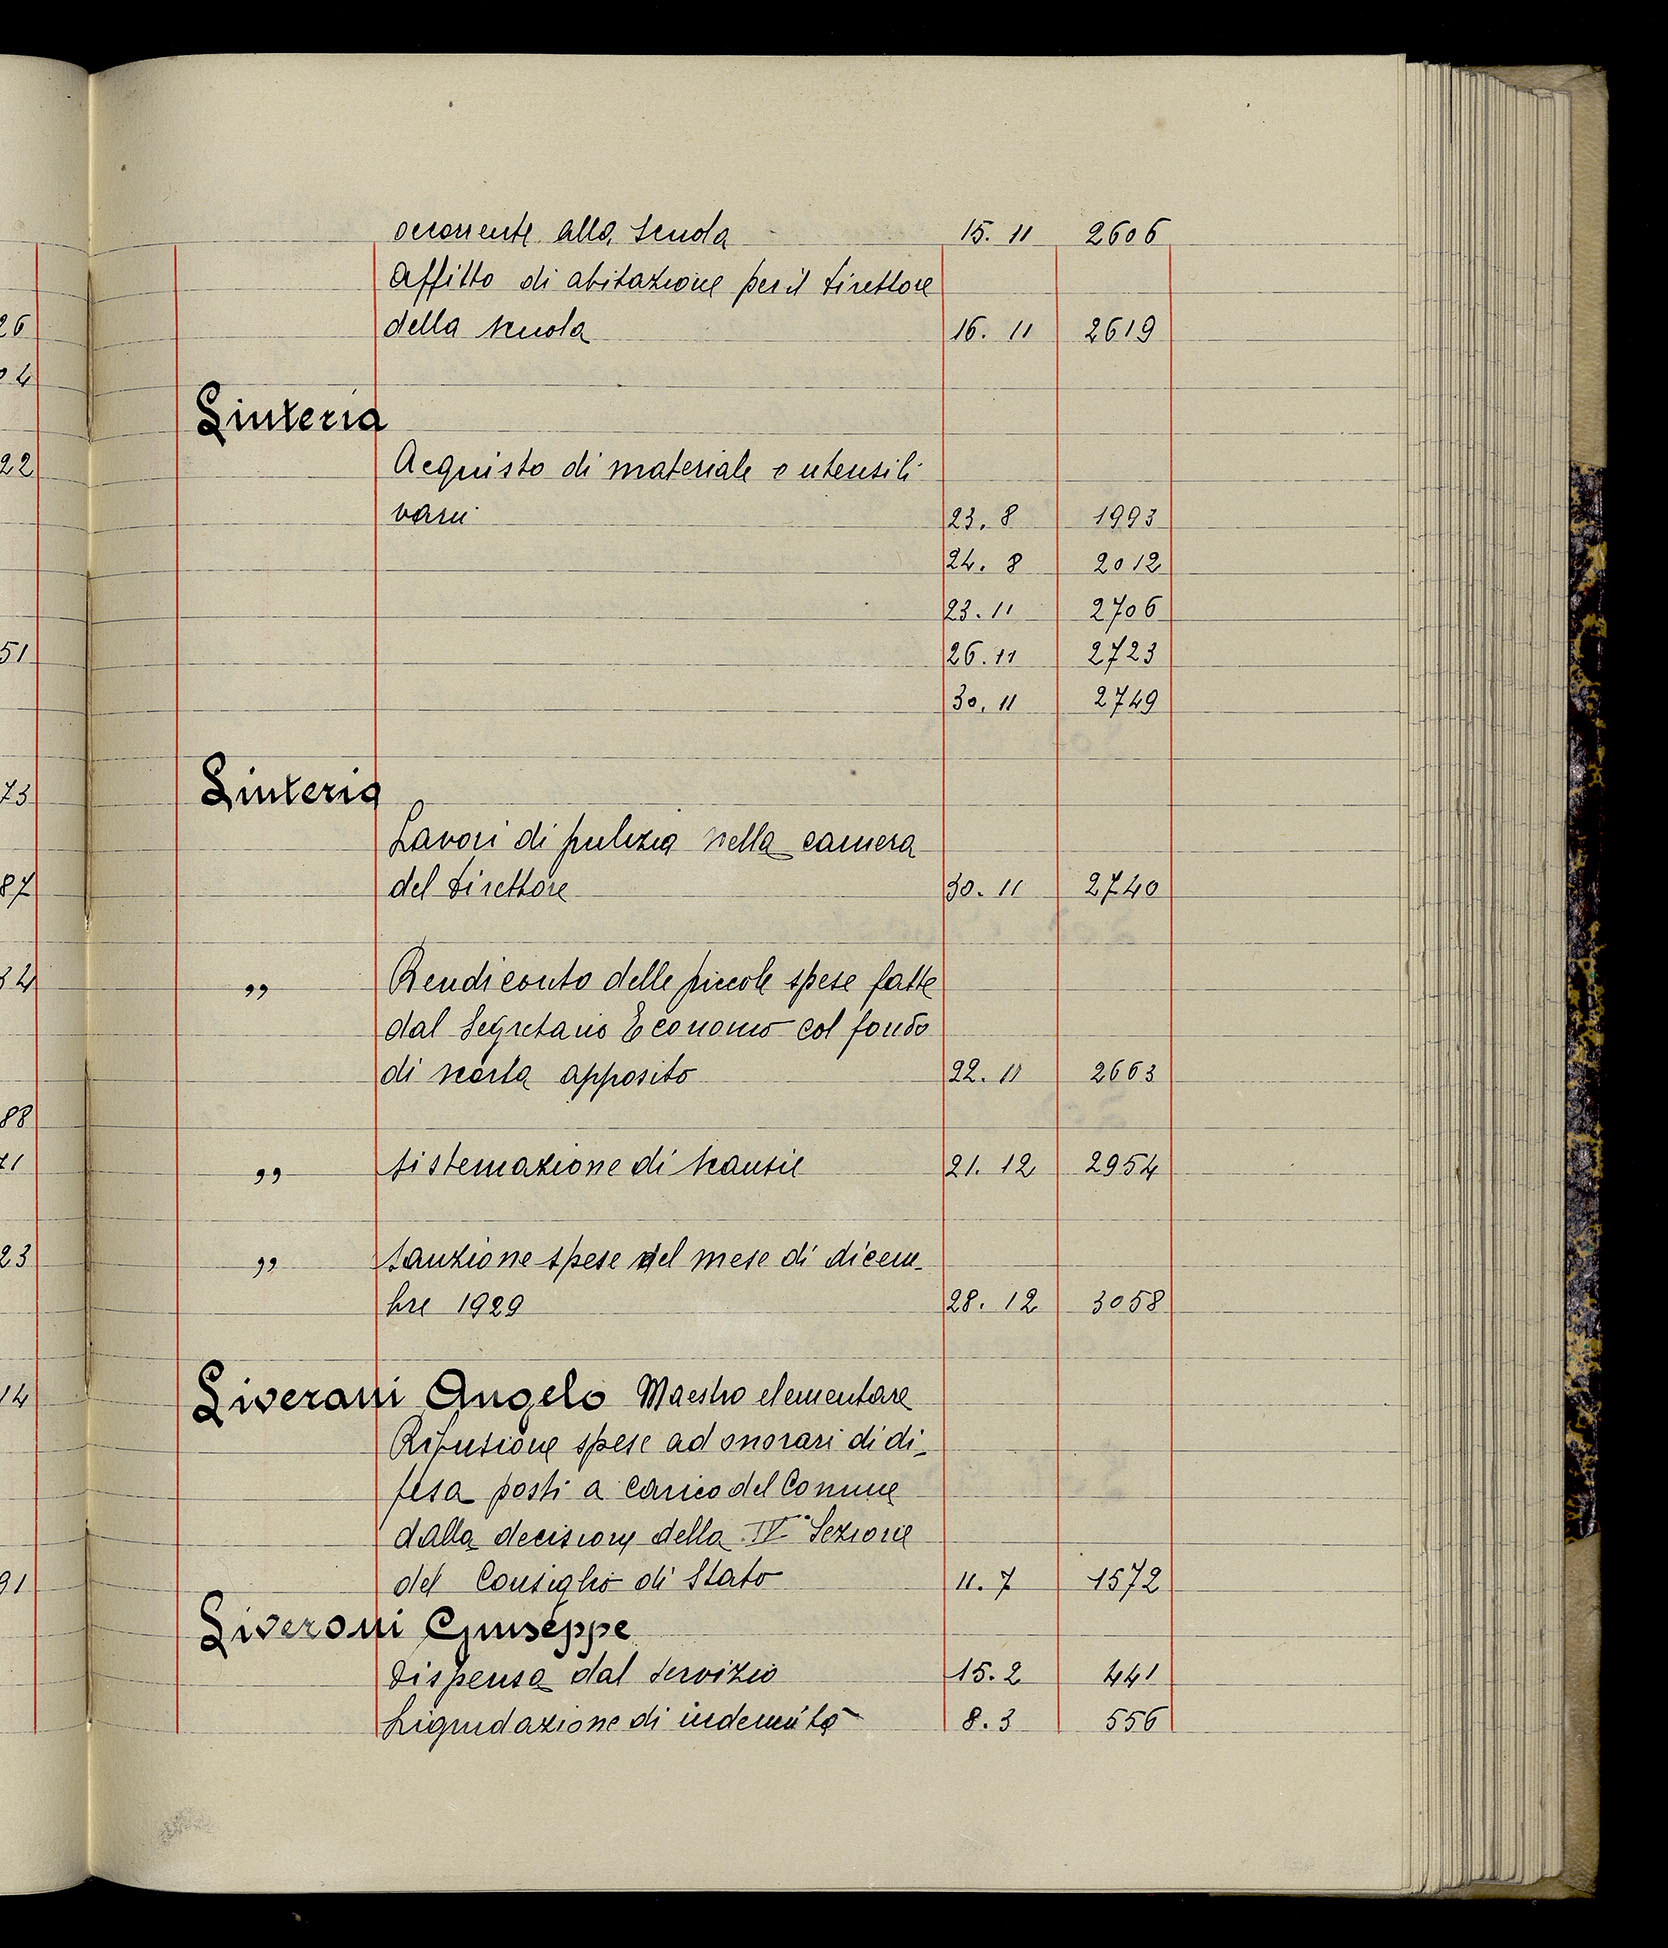 occorrente alla Scuola 15. 11 2606
Affitto di abitazione per il Direttore
26
della scuola 16. 11 2619
04
Linteria
22
Acquisto di materiale e utensili
varii 23. 8 1993
24. 8 2012
23. 11 2706
51
26. 11 2723
30. 11 2749
73
Linteria
Lavori di pulizia nella camera
87
del Direttore 30. 11 2740
32
„ Rendiconto delle piccole spese fatte
dal Segretario Economo col fondo
di scorta apposito 22. 11 2663
88
71
„ Sistemazione di scansie 21. 12 2954
23
„ Sanzione spese del mese di dicem-
bre 1929 28. 12 3058
14
Liverani Angelo Maestro elementare
Rifusione spese ad onorari di di-
fesa posti a carico del Comune
dalla decisione della IV Sezione
91
del Consiglio di Stato 11. 7 1572
Liverani Giuseppe
Dispensa dal Servizio 15. 2 441
Liquidazione di indennità 8. 3 556